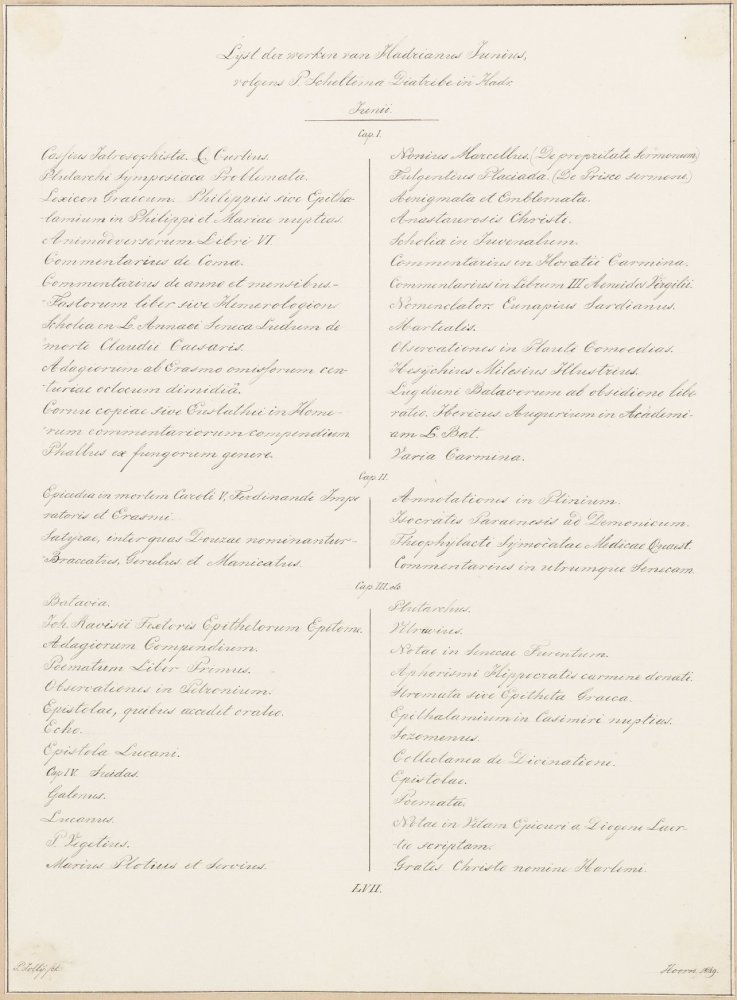 Lyst der werken van Hadrianus Junius,
volgens P. Scheltema Diatribe in Hadr.
Junii.
Cap. I.
Cassius Jatrosophista. Q. Curtius.
Plutarchi Symposiaca Problemata.
Lexicon Graecum. Philippeis sive Epitha-
lamium in Philippi et Mariae nuptias.
Animadversorum Libri VI.
Commentarius de Coma.
Commentarius de anno et mensibus-
Fastorum liber sive Hemerologion
Scholia in L. Annaei Seneca Ludum de
morte Claudii Caesaris.
Adagiorum ab Erasmo omissorum cen-
turiae octo cum dimidia.
Cornu copiae sive Eustathii in Home-
rum commentariorum compendium
Phallus ex fungorum genere.
Nonius Marcellus. (De propritate Sermonum)
Fulgentius Placiada. (De Prisco sermone)
Aenigmata et Emblemata.
Anastaurosis Christi.
Scholia in Juvenalum.
Commentarius in Horatii Carmina.
Commentarius in Librum III Aeneidos Virgilii.
Nomenclator. Eunapius Sardianus.
Martialis.
Observationes in Plauti Comoedias.
Hesychius Milesius Illustrius.
Lugduni Batavorum ab obsidione libe
ratio. Hericus. Augurium in Academi-
am L. Bat.
Varia Carmina.
Cap. II.
Epicedia in mortem Caroli V, Ferdinandi Impe
ratoris et Erasmi.
Satyrae, inter quas Douzae nominantur-
Braccatus, Gerulus et Manicatus.
Annotationes in Plinium.
Isocratis Paraenesis ad Demonicum.
Theophylacti Symocatae Medicae Quaest.
Commentarius in utrumque Senecam
Cap. III. etc
Batavia.
Joh. Ravisii Textoris Epithetorum Epitome.
Adagiorum Compendium.
Poematum Liber Primus.
Observationes in Petronium.
Epistolae, quibus accedit oratio.
Echo.
Epistola Lucani.
Cap. IV. Suidas.
Galenus.
Lucanus.
P. Vegetius.
Marius Plotius et Servius.
Plutarchus.
Vitruvius.
Notae in Senecae Furentum.
Aphorismi Hippocratis carmine donati.
Stromata sive Epitheta Graeca.
Epithalamium in Casimiri nuptias.
Sozomenus.
Collectanea de Divinatione.
Epistolae.
Poemata.
Notae in Vitam Epicuri a Diogene Laer-
tio scriptam.
Grates Christo nomine Harlemi.
LVII.
Hoorn